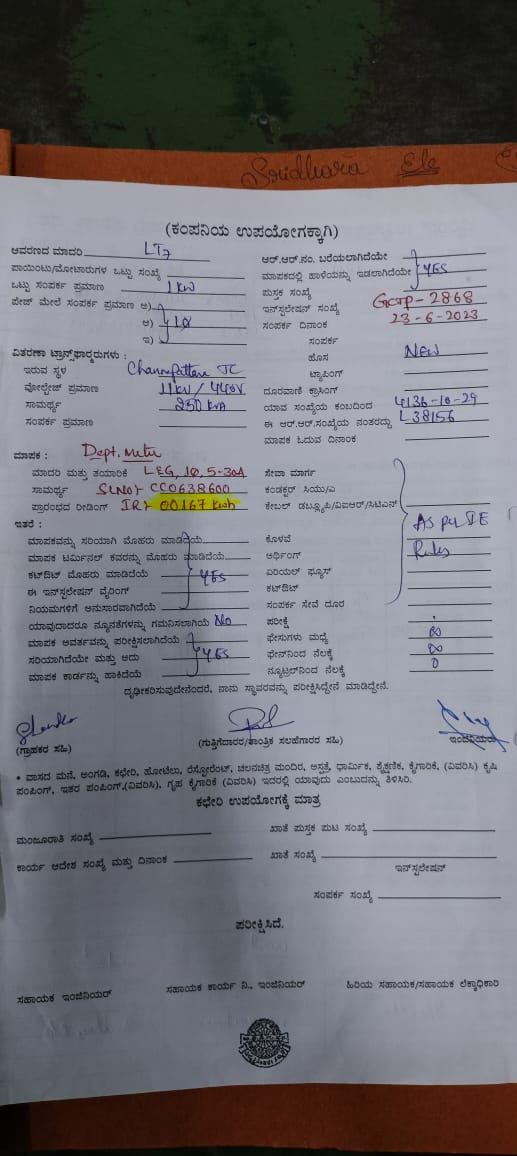 Sridhara Ele
(ಕಂಪನಿಯ ಉಪಯೋಗಕ್ಕಾಗಿ)
ಆವರಣದ ಮಾದರಿ LT7
ಪಾಯಿಂಟು/ಮೋಟಾರುಗಳ ಒಟ್ಟು ಸಂಖ್ಯೆ
ಒಟ್ಟು ಸಂಪರ್ಕ ಪ್ರಮಾಣ 1 KW
ಪೇಜ್ ಮೇಲೆ ಸಂಪರ್ಕ ಪ್ರಮಾಣ ಅ)
ಆ) 1Ø
ಇ)
ಆರ್.ಆರ್.ನಂ. ಬರೆಯಲಾಗಿದೆಯೇ
ಮಾಪಕದಲ್ಲಿ ಹಾಳೆಯನ್ನು ಇಡಲಾಗಿದೆಯೇ YES
ಪುಸ್ತಕ ಸಂಖ್ಯೆ
ಇನ್‌ಸ್ಟಲೇಷನ್ ಸಂಖ್ಯೆ GCTP-2868
ಸಂಪರ್ಕ ದಿನಾಂಕ 23-6-2023
ಸಂಪರ್ಕ
ಹೊಸ NEW
ಟ್ಯಾಪಿಂಗ್
ವಿತರಣಾ ಟ್ರಾನ್ಸ್‌ಫಾರ್ಮರುಗಳು :
ಇರುವ ಸ್ಥಳ Channapattana TC
ವೋಲ್ಟೇಜ್ ಪ್ರಮಾಣ 11KV / 440V
ಸಾಮರ್ಥ್ಯ 250 KVA
ಸಂಪರ್ಕ ಪ್ರಮಾಣ
ದೂರವಾಣಿ ಕ್ರಾಸಿಂಗ್
ಯಾವ ಸಂಖ್ಯೆಯ ಕಂಬದಿಂದ 4136-10-29
ಈ ಆರ್.ಆರ್.ಸಂಖ್ಯೆಯ ನಂತರದ್ದು L38156
ಮಾಪಕ ಓದುವ ದಿನಾಂಕ
ಮಾಪಕ : Dept. Meter
ಮಾದರಿ ಮತ್ತು ತಯಾರಿಕೆ L&G, 1Ø, 5-30A
ಸಾಮರ್ಥ್ಯ SL NO:- CC0638600
ಪ್ರಾರಂಭದ ರೀಡಿಂಗ್ IR:- 00167 Kwh
ಸೇವಾ ಮಾರ್ಗ
ಕಂಡಕ್ಟರ್ ಸಿಯು/ಎ
ಕೇಬಲ್ ಡಬ್ಲ್ಯೂಪಿ/ವಿಐಆರ್/ಸಿಟಿಎಸ್
ಇತರೆ :
ಮಾಪಕವನ್ನು ಸರಿಯಾಗಿ ಮೊಹರು ಮಾಡಿದೆಯೆ
ಮಾಪಕ ಟರ್ಮಿನಲ್ ಕವರನ್ನು ಮೊಹರು ಮಾಡಿದೆಯೆ
ಕಟ್‌ಔಟ್ ಮೊಹರು ಮಾಡಿದೆಯೆ YES
ಈ ಇನ್‌ಸ್ಟಲೇಷನ್ ವೈರಿಂಗ್
ನಿಯಮಗಳಿಗೆ ಅನುಸಾರವಾಗಿದೆಯೆ
ಯಾವುದಾದರೂ ನ್ಯೂನತೆಗಳನ್ನು ಗಮನಿಸಲಾಗಿಯೆ No
ಮಾಪಕ ಆವರ್ತವನ್ನು ಪರೀಕ್ಷಿಸಲಾಗಿದೆಯೆ
ಸರಿಯಾಗಿದೆಯೇ ಮತ್ತು ಅದು YES
ಮಾಪಕ ಕಾರ್ಡನ್ನು ಹಾಕಿದೆಯೆ
ಕೊಳವೆ AS per IE
ಅರ್ಥಿಂಗ್ Rules
ಏರಿಯಲ್ ಫ್ಯೂಸ್
ಕಟ್‌ಔಟ್
ಸಂಪರ್ಕ ಸೇವೆ ದೂರ
ಪರೀಕ್ಷೆ
ಫೇಸುಗಳು ಮಧ್ಯೆ ∞
ಫೇಸ್‌ನಿಂದ ನೆಲಕ್ಕೆ ∞
ನ್ಯೂಟ್ರಲ್‌ನಿಂದ ನೆಲಕ್ಕೆ 0
ದೃಢೀಕರಿಸುವುದೇನೆಂದರೆ, ನಾನು ಸ್ಥಾವರವನ್ನು ಪರೀಕ್ಷಿಸಿದ್ದೇನೆ ಮಾಡಿದ್ದೇನೆ.
(ಗ್ರಾಹಕರ ಸಹಿ)
(ಗುತ್ತಿಗೆದಾರರ/ತಾಂತ್ರಿಕ ಸಲಹೆಗಾರರ ಸಹಿ)
ಇಂಜಿನಿಯರ್
• ವಾಸದ ಮನೆ, ಅಂಗಡಿ, ಕಛೇರಿ, ಹೋಟೆಲು, ರೆಸ್ಟೋರೆಂಟ್, ಚಲನಚಿತ್ರ ಮಂದಿರ, ಆಸ್ಪತ್ರೆ, ಧಾರ್ಮಿಕ, ಶೈಕ್ಷಣಿಕ, ಕೈಗಾರಿಕೆ, (ವಿವರಿಸಿ) ಕೃಷಿ
ಪಂಪಿಂಗ್, ಇತರ ಪಂಪಿಂಗ್,(ವಿವರಿಸಿ), ಗೃಹ ಕೈಗಾರಿಕೆ (ವಿವರಿಸಿ) ಇದರಲ್ಲಿ ಯಾವುದು ಎಂಬುದನ್ನು ತಿಳಿಸಿರಿ.
ಕಛೇರಿ ಉಪಯೋಗಕ್ಕೆ ಮಾತ್ರ
ಮಂಜೂರಾತಿ ಸಂಖ್ಯೆ
ಖಾತೆ ಪುಸ್ತಕ ಪುಟ ಸಂಖ್ಯೆ
ಕಾರ್ಯ ಆದೇಶ ಸಂಖ್ಯೆ ಮತ್ತು ದಿನಾಂಕ
ಖಾತೆ ಸಂಖ್ಯೆ
ಇನ್‌ಸ್ಟಲೇಷನ್
ಸಂಪರ್ಕ ಸಂಖ್ಯೆ
ಪರೀಕ್ಷಿಸಿದೆ.
ಸಹಾಯಕ ಇಂಜಿನಿಯರ್
ಸಹಾಯಕ ಕಾರ್ಯ ನಿ., ಇಂಜಿನಿಯರ್
ಹಿರಿಯ ಸಹಾಯಕ/ಸಹಾಯಕ ಲೆಕ್ಕಾಧಿಕಾರಿ